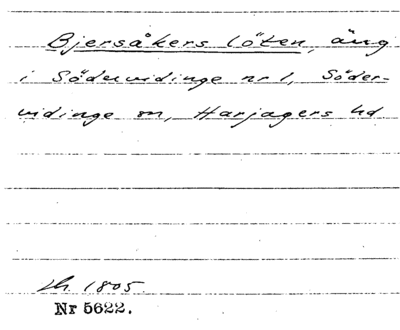 Bjersåkers löten, äng
i Södervidinge nr 1, Söder-
vidinge sn, Harjagers hd
1805.
Nr 5622.